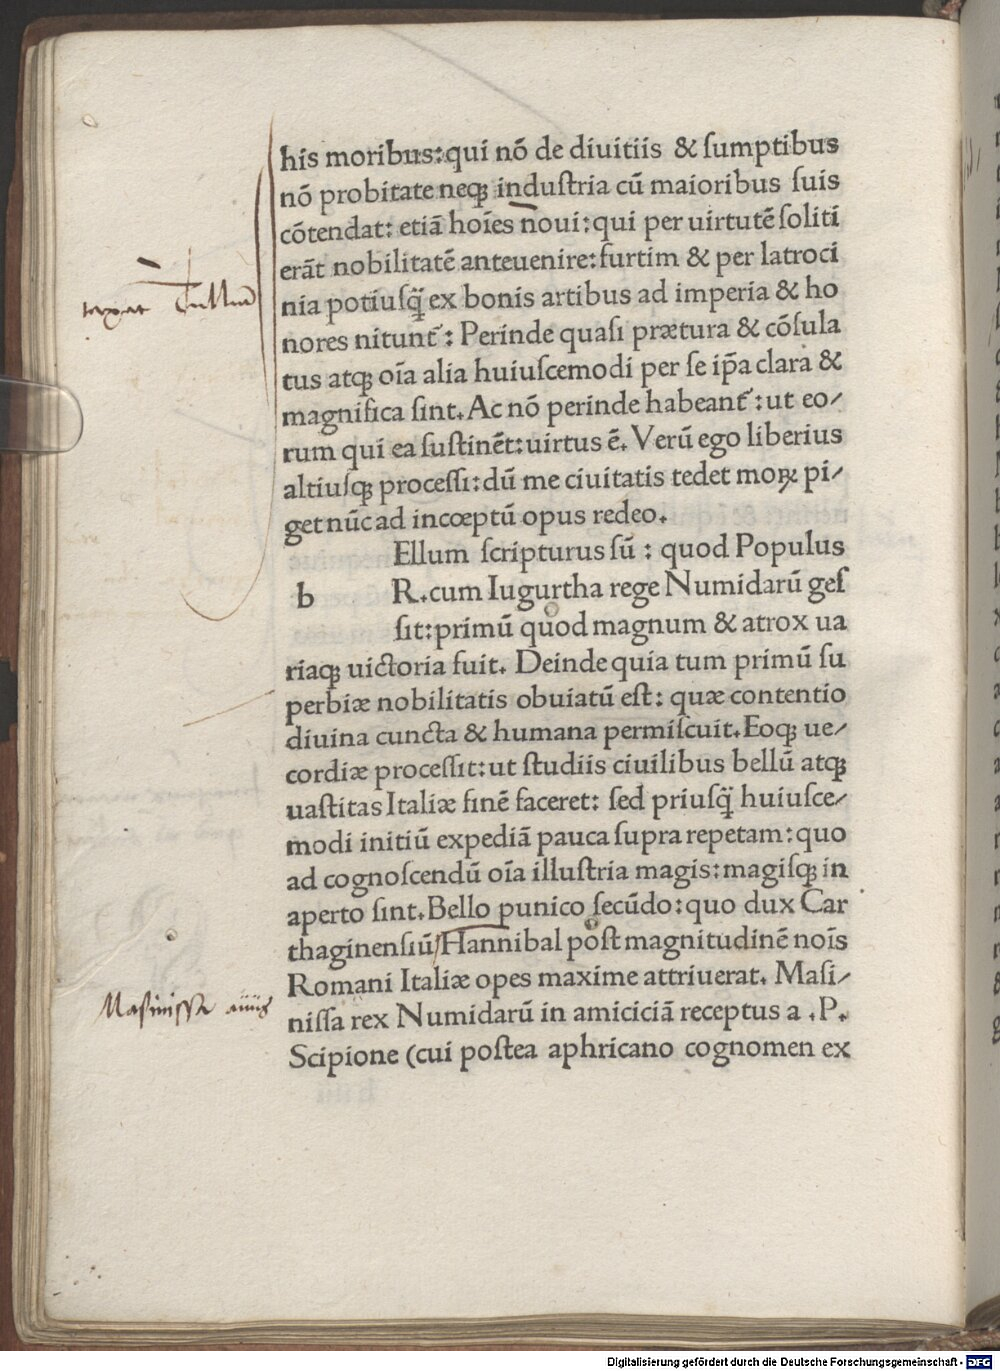 his moribus:qui nō de diuitiis & ſumptibus
nō probitate neq; induſtria cū maioribus ſuis
cōtendat: etiā hoīes noui:qui per uirtutē ſoliti
erāt nobilitatē anteuenire:furtim & per latroci
nia potiuſq̄ ex bonis artibus ad imperia & ho
nores nitunt᷑: Perinde quaſi prætura & cōſula
tus atq; oīa alia huiuſcemodi per ſe ip̄a clara &
magnifica ſint. Ac nō perinde habeant᷑:ut eo/
rum qui ea ſuſtinēt:uirtus ē. Verū ego liberius
altiuſq; proceſſi:dū me ciuitatis tedet moꝝ pi/
get nūc ad incœptū opus redeo.
Ellum ſcripturus ſū : quod Populus
b R.cum Iugurtha rege Numidarū geſ
ſit:primū quod magnum & atrox ua
riaq; uictoria fuit. Deinde quia tum primū ſu
perbiæ nobilitatis obuiatū eſt: quæ contentio
diuina cuncta & humana permiſcuit. Eoq; ue/
cordiæ proceſſit:ut ſtudiis ciuilibus bellū atq;
uaſtitas Italiæ finē faceret: ſed priuſq̄ huiuſce/
modi initiū expediā pauca ſupra repetam:quo
ad cognoſcendū oīa illuſtria magis:magiſq; in
aperto ſint. Bello punico ſecūdo:quo dux Car
thaginenſiū/Hannibal poſt magnitudinē noīs
Romani Italiæ opes maxime attriuerat. Maſi/
niſſa rex Numidarū in amiciciā receptus a .P.
Scipione (cui poſtea aphricano cognomen ex
taxat Tulliū
Masinissa auus
Digitalisierung gefördert durch die Deutsche Forschungsgemeinschaft - DFG